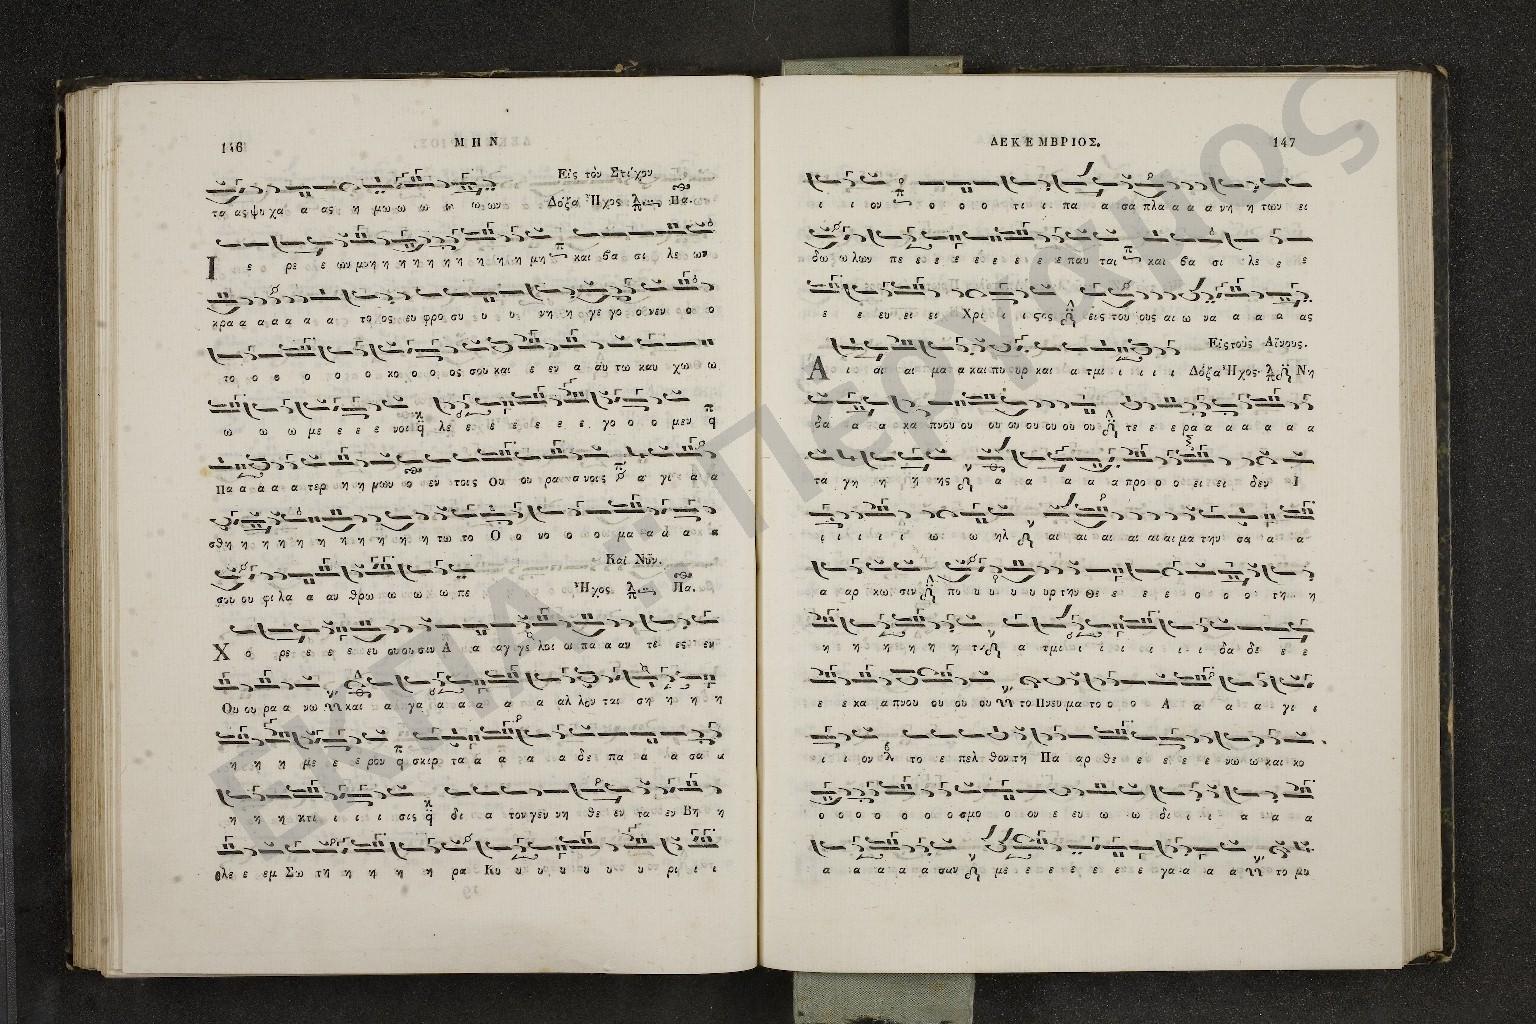 146
ΜΗΝ
Εἰς τὸν Στίχον
τα ας ψυ χα α ας η μω ω ω ω ω ων Δόξα Ἦχος Πα.
Ι ε ρε ε ων μνη η η η η η η η η η μη και βα σι λε ων
κρα α α α α α το ος ευ φρο συ υ υ νη η γε γο ο νεν ο ο
το ο ο ο ο ο κο ο ο ος σου και ε εν α αυ τω καυ χω ω
ω ω ω με ε ε ε νοι λε ε ε ε ε ε ε γο ο ο μεν
Πα α α α α τερ η η μων ο εν τοις Ου ου ρα α νοις α γι α α
σθη η η η η η η η η η η τω το Ο ο νο ο ο μα α α α α
Καὶ Νῦν.
σου ου φι λα α αν θρω ω ω ω πε Ἦχος Πα.
Χ ο ρε ε ε ε ευ ου ου σιν Α α αγ γε λοι ω πα α αν τε ες εν
Ου ου ρα α νω και α γα α α α α αλ λον ται ση η η η
η η η με ε ε ρον σκιρ τα α α α α δε πα α α σα α
η η η κτι ι ι ι σις δι α τον γεν νη θε εν τα εν Βη η
θλε ε εμ Σω τη η η η η ρα Κυ υ υ υ υ υ υ ρι ι ι
ΔΕΚΕΜΒΡΙΟΣ.
147
ι ι ον ο ο ο τι ι πα α σα πλα α α α νη η των ει
δω ω λων πε ε ε ε ε ε ε ε παυ ται και βα σι λε ε ε
ε ε ευ ει ει Χρι ι ι ςος εις του ους αι ω να α α α ας
Εἰς τοὺς Αἴνους.
Α ι αι αι μα α και πυ υρ και α τμι ι ι ι ι Δόξα Ἦχος Νη
δα α α κα πνου ου ου ου ου ου ου ου τε ε ε ρα α α α α α α
τα γη η η η ης α α α α α α προ ο ο ει ει δεν Ι
ι ι ι ι ι ω ω ηλ αι αι αι αι αι αι μα την σα α α
α αρ κω σιν πυ υ υ υ υ υρ την Θε ε ε ε ο ο ο τη η
η η η η η η α τμι ι ι ι ι ι ι δα δε ε ε
ε ε κα α πνου ου ου ου το Πνευ μα το ο ο Α α α α γι ε
ι ι ον το ε πελ θον τη Πα αρ θε ε ε ε ε νω ω και κο
ο ο ο ο ο ο ο σμο ο ον ε ευ ω ω δι ι ι α α α
α α α α α σαν με ε ε ε ε ε ε ε γα α α α το μυ